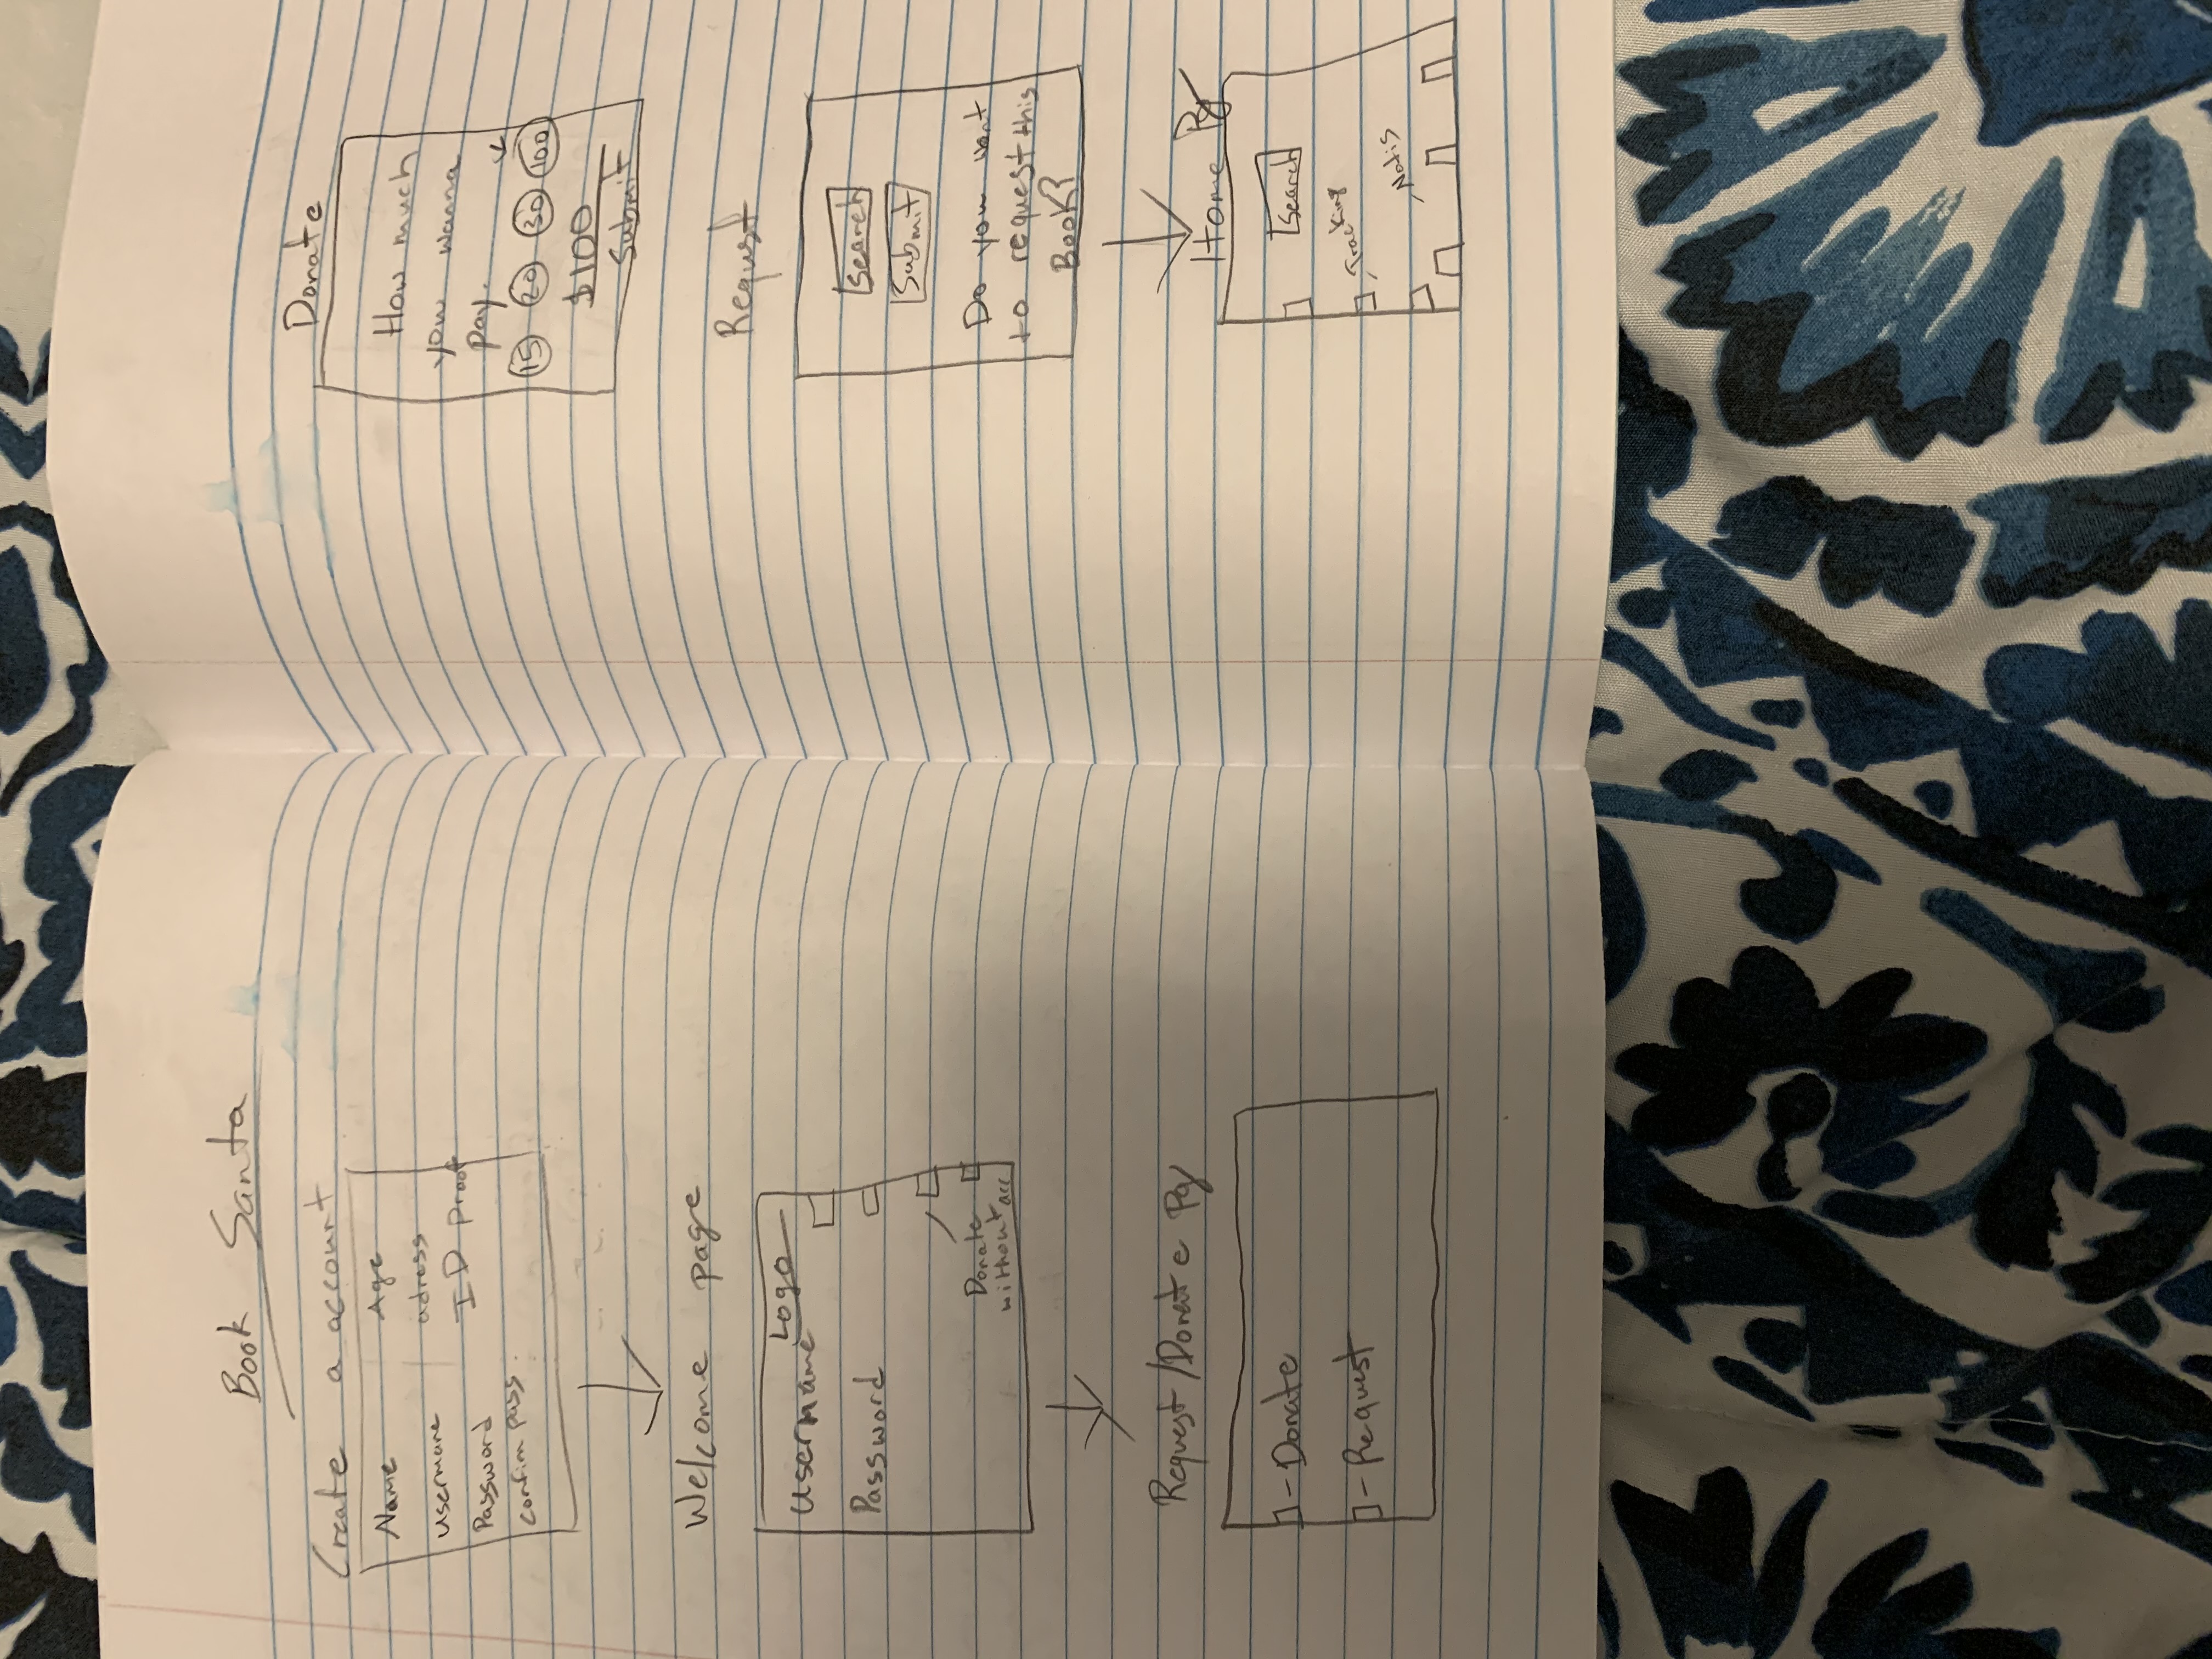 Book Santa
Create a account
Name Age
usermane adress
Password ID Proof
confim pass.
Welcome page
Logo
Username
Password
Donate
without acc
Request/Donate Pg
- Donate
- Request
Donate
How much
you wanna
pay.
15 20 30 100
$100
Submit
Requst
Search
Submit
Do you want
to request this
Book?
Home Pg
Search
- Tracking
- Notis